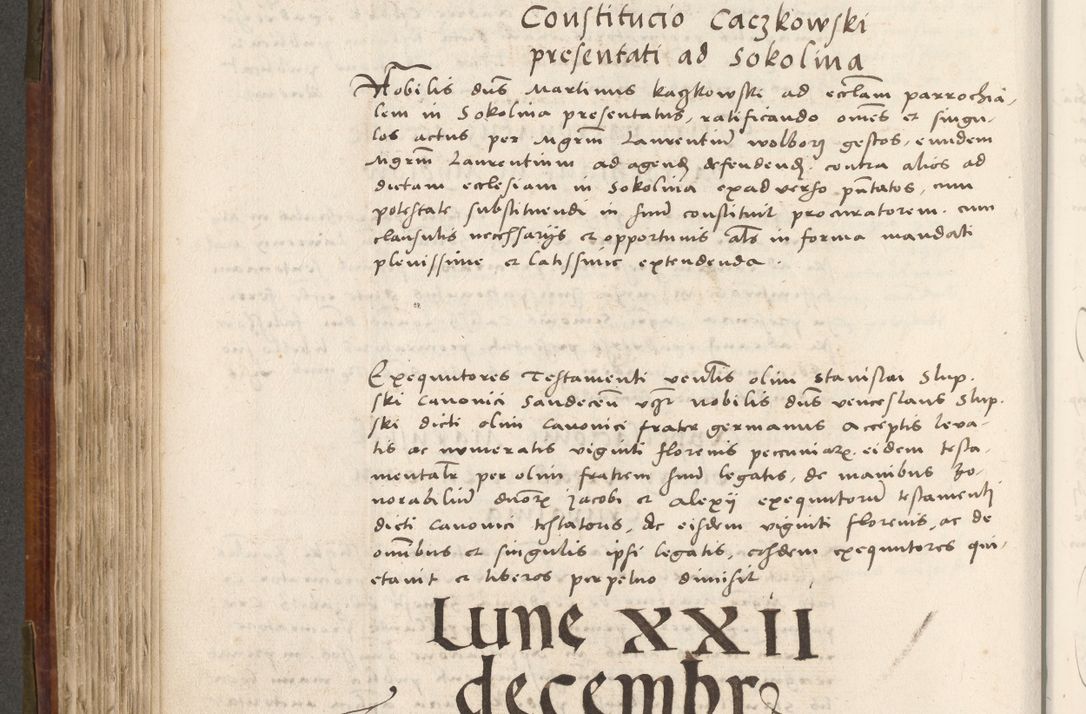 Constitucio Caczkowski
presentati ad Sokolina
Nobilis dns Martinus kaczkowski ad ecclam parrochia-
lem in Sokolina presentatus, ratificando omes et singu-
los actus per Mgrm Laurentium wolborz gestos, eundem
Mgrm Laurentium ad agend defendend contra alios ad
dictam ecclesiam in Sokolina ex adverso pntatos, cum
potestate substituendi in suum constituit procuratorem, cum
clausulis necessarijs et opportunis als in forma mandati
plenissime et latissime extendenda.
Exequutores Testamenti venlis olim Stanislai Slup-
ski Canonici Sandecen Nobilis dns venceslaus Slup-
ski dicti olim Canonici frater germanus Acceptis leva-
tis ac numeratis viginti florenis peccuniar eidem testa-
mentalr per olim fratrem suum legatis, de manibus ho-
norabilium dnor Jacobi et Alexij exequutorum testamenti
dicti Canonici testatoris, de eisdem viginti florenis, ac de
omnibus et singulis ipsi legatis, eosdem exequutores qui-
etavit et liberos perpetuo dimisit
Lune XXII
decembr